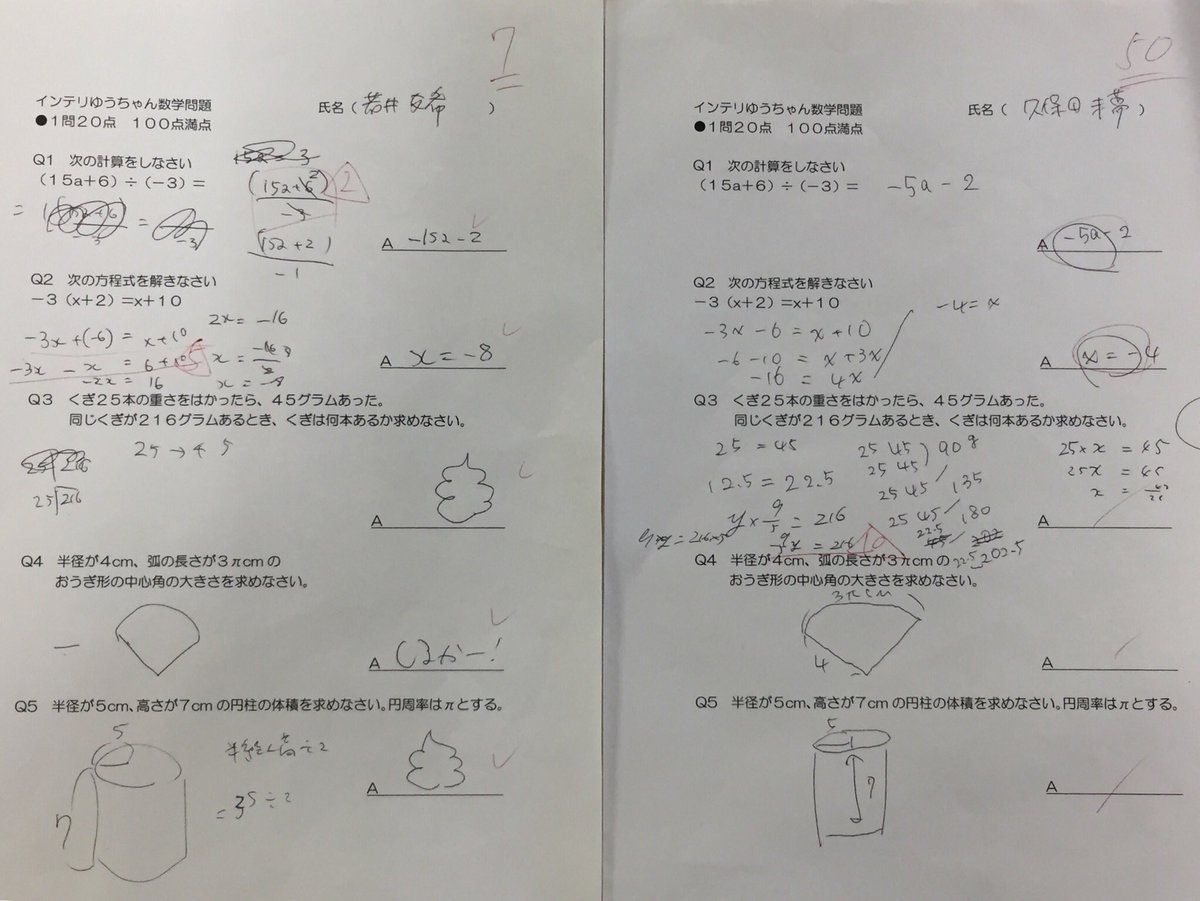 7
インテリゆうちゃん数学問題
氏名（若井友希）
●１問２０点　１００点満点
Q１　次の計算をしなさい
（１５a＋６）÷（－３）＝
(15a+6)
2
-3
(15a+2)
-1
A -15a-2
Q２　次の方程式を解きなさい
－３（x＋２）＝x＋１０
-3x+(-6) = x+10
-3x - x = 6+10
-2x = 16
2x = -16
x = -8
A x = -8
Q３　くぎ２５本の重さをはかったら、４５グラムあった。
同じくぎが２１６グラムあるとき、くぎは何本あるか求めなさい。
25→45
25 216
A
Q４　半径が４cm、弧の長さが３πcmの
おうぎ形の中心角の大きさを求めなさい。
A しるかー!
Q５　半径が５cm、高さが７cmの円柱の体積を求めなさい。円周率はπとする。
5
7
÷2
= 35÷2
A
50
インテリゆうちゃん数学問題
氏名（久保田未夢）
●１問２０点　１００点満点
Q１　次の計算をしなさい
（１５a＋６）÷（－３）＝ -5a-2
A -5a-2
Q２　次の方程式を解きなさい
－３（x＋２）＝x＋１０
-3x-6 = x+10
-6-10 = x+3x
-16 = 4x
-4 = x
A x = -4
Q３　くぎ２５本の重さをはかったら、４５グラムあった。
同じくぎが２１６グラムあるとき、くぎは何本あるか求めなさい。
25 = 45
12.5 = 22.5
y×9/5 = 216
9y = 216
10
25 45
25 45 90g
25 45 135
25 45 180
22.5
22.5 202.5
25×x = 45
25x = 45
x = 45/25
A
Q４　半径が４cm、弧の長さが３πcmの
おうぎ形の中心角の大きさを求めなさい。
3πcm
4
A
Q５　半径が５cm、高さが７cmの円柱の体積を求めなさい。円周率はπとする。
5
7
A